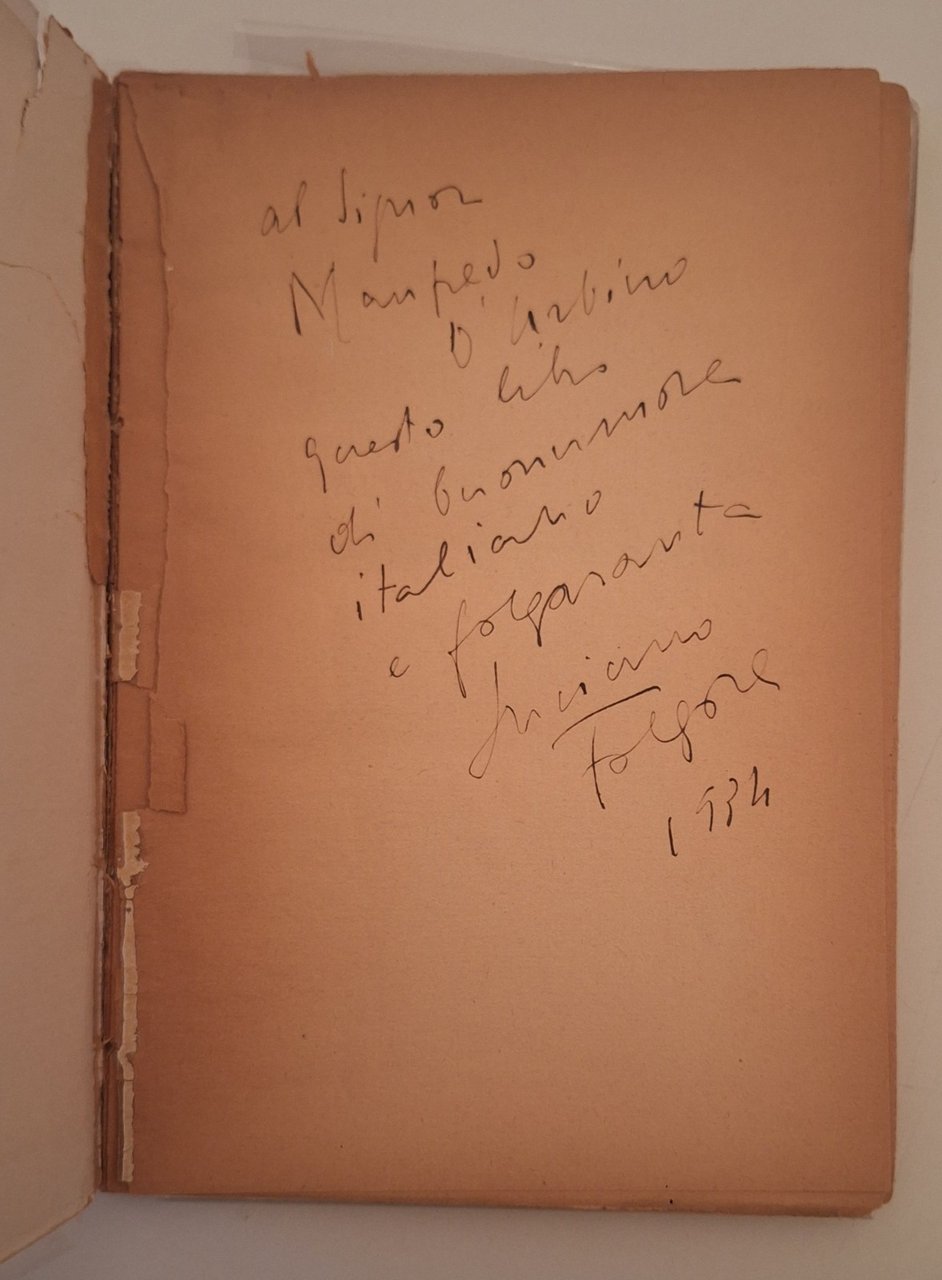 al Signor
Manfredo
D'Urbino
questo libro
di buonumore
italiano
e folgorante
Luciano
Folgore
1934